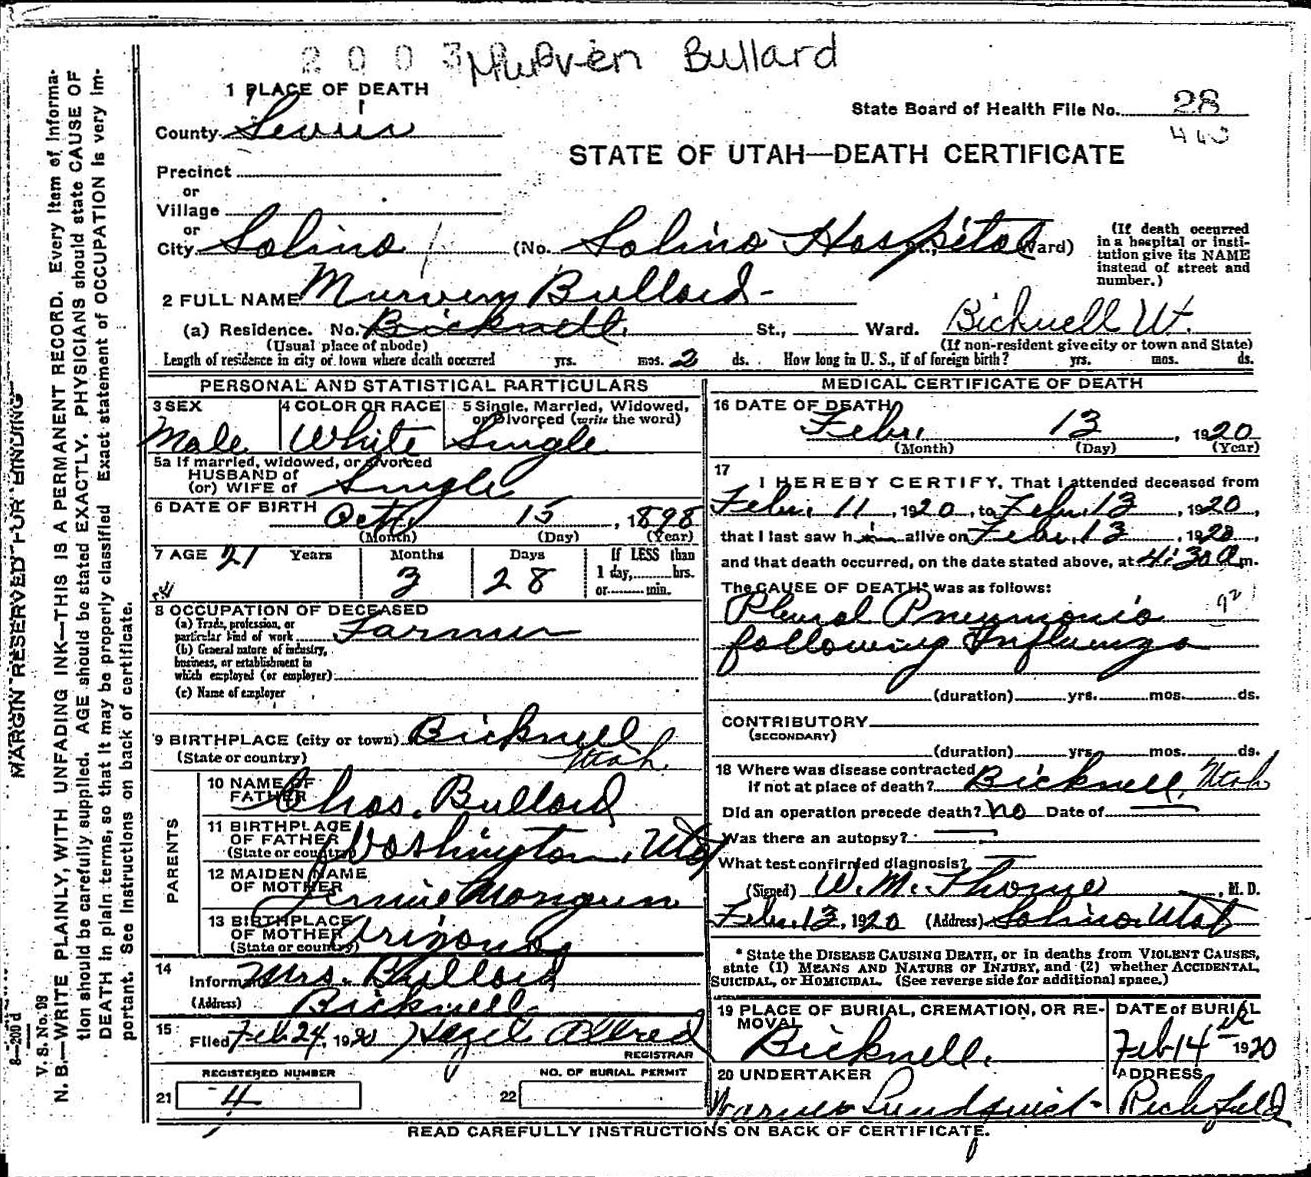 2003
Murven Bullard
1 PLACE OF DEATH
State Board of Health File No. 28
County Sevier
STATE OF UTAH—DEATH CERTIFICATE
Precinct
or
Village
or
City Salina (No. Salina Hospital St., Ward)
(If death occurred in a hospital or institution give its NAME instead of street and number.)
2 FULL NAME Murven Bullard
(a) Residence. No. Bicknell St., Ward. Bicknell Ut.
(Usual place of abode) (If non-resident give city or town and State)
Length of residence in city or town where death occurred yrs. mos. 2 ds. How long in U. S., if of foreign birth? yrs. mos. ds.
PERSONAL AND STATISTICAL PARTICULARS
3 SEX 4 COLOR OR RACE 5 Single, Married, Widowed, or Divorced (write the word)
Male White Single
5a If married, widowed, or divorced
HUSBAND of
(or) WIFE of Single
6 DATE OF BIRTH Oct. 15, 1898
(Month) (Day) (Year)
7 AGE 21 Years Months Days If LESS than
3 28 1 day, hrs.
or min.
8 OCCUPATION OF DECEASED
(a) Trade, profession, or
particular kind of work Farmer
(b) General nature of industry,
business, or establishment in
which employed (or employer)
(c) Name of employer
9 BIRTHPLACE (city or town) Bicknell
(State or country) Utah.
PARENTS
10 NAME OF FATHER Chas. Bullard
11 BIRTHPLACE OF FATHER Washington, Utah
(State or country)
12 MAIDEN NAME OF MOTHER Jennie
13 BIRTHPLACE OF MOTHER Arizona
(State or country)
14 Informant Mrs. Bullard
(Address) Bicknell
15 Filed Feb 24, 1920 Hazel Allred
REGISTRAR
REGISTERED NUMBER NO. OF BURIAL PERMIT
21 4 22
MEDICAL CERTIFICATE OF DEATH
16 DATE OF DEATH
Febr. 13, 1920
(Month) (Day) (Year)
17 I HEREBY CERTIFY, That I attended deceased from
Febr. 11, 1920, to Febr. 13, 1920,
that I last saw him alive on Febr. 13, 1920,
and that death occurred, on the date stated above, at 4:30 a m.
The CAUSE OF DEATH* was as follows:
Plural Pneumonia
following Influenza
92
(duration) yrs. mos. ds.
CONTRIBUTORY
(SECONDARY)
(duration) yrs. mos. ds.
18 Where was disease contracted
if not at place of death? Bicknell, Utah
Did an operation precede death? no Date of
Was there an autopsy?
What test confirmed diagnosis?
(Signed) W. M. Thome, M. D.
Febr. 13, 1920 (Address) Salina Utah
* State the DISEASE CAUSING DEATH, or in deaths from VIOLENT CAUSES,
state (1) MEANS AND NATURE OF INJURY, and (2) whether ACCIDENTAL,
SUICIDAL, or HOMICIDAL. (See reverse side for additional space.)
19 PLACE OF BURIAL, CREMATION, OR REMOVAL DATE of BURIAL
Bicknell. Feb 14th 1920
20 UNDERTAKER ADDRESS
Warner Lundquist Richfield
READ CAREFULLY INSTRUCTIONS ON BACK OF CERTIFICATE.
MARGIN RESERVED FOR BINDING
N. B.—WRITE PLAINLY, WITH UNFADING INK—THIS IS A PERMANENT RECORD. Every item of informa-
tion should be carefully supplied. AGE should be stated EXACTLY. PHYSICIANS should state CAUSE OF
DEATH in plain terms, so that it may be properly classified Exact statement of OCCUPATION is very im-
portant. See instructions on back of certificate.
8—200 d
V. S. No. 98